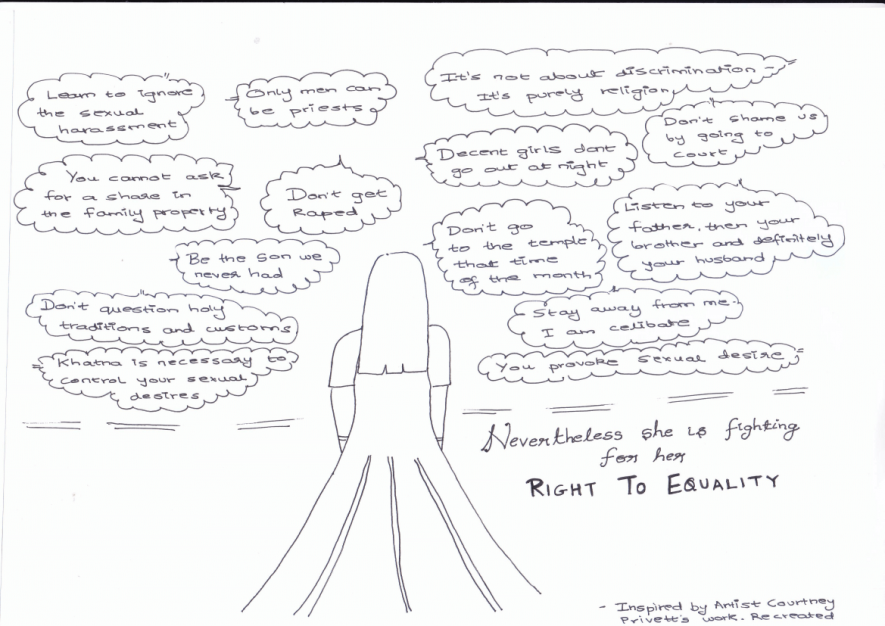 Learn to ignore
the sexual
harassment
Only men can
be priests
It's not about discrimination -
It's purely religion
Don't shame us
by going to
court
Decent girls dont
go out at night
You cannot ask
for a share in
the family property
Don't get
Raped
Listen to your
father, then your
brother and definitely
your husband
Don't go
to the temple
that time
of the month
Be the Son we
never had
Don't question holy
traditions and customs
Stay away from me.
I am celibate
Khatna is necessary to
control your sexual
desires
You provoke sexual desire
Nevertheless she is fighting
for her
RIGHT TO EQUALITY
- Inspired by Artist Courtney
Privett's work. Recreated